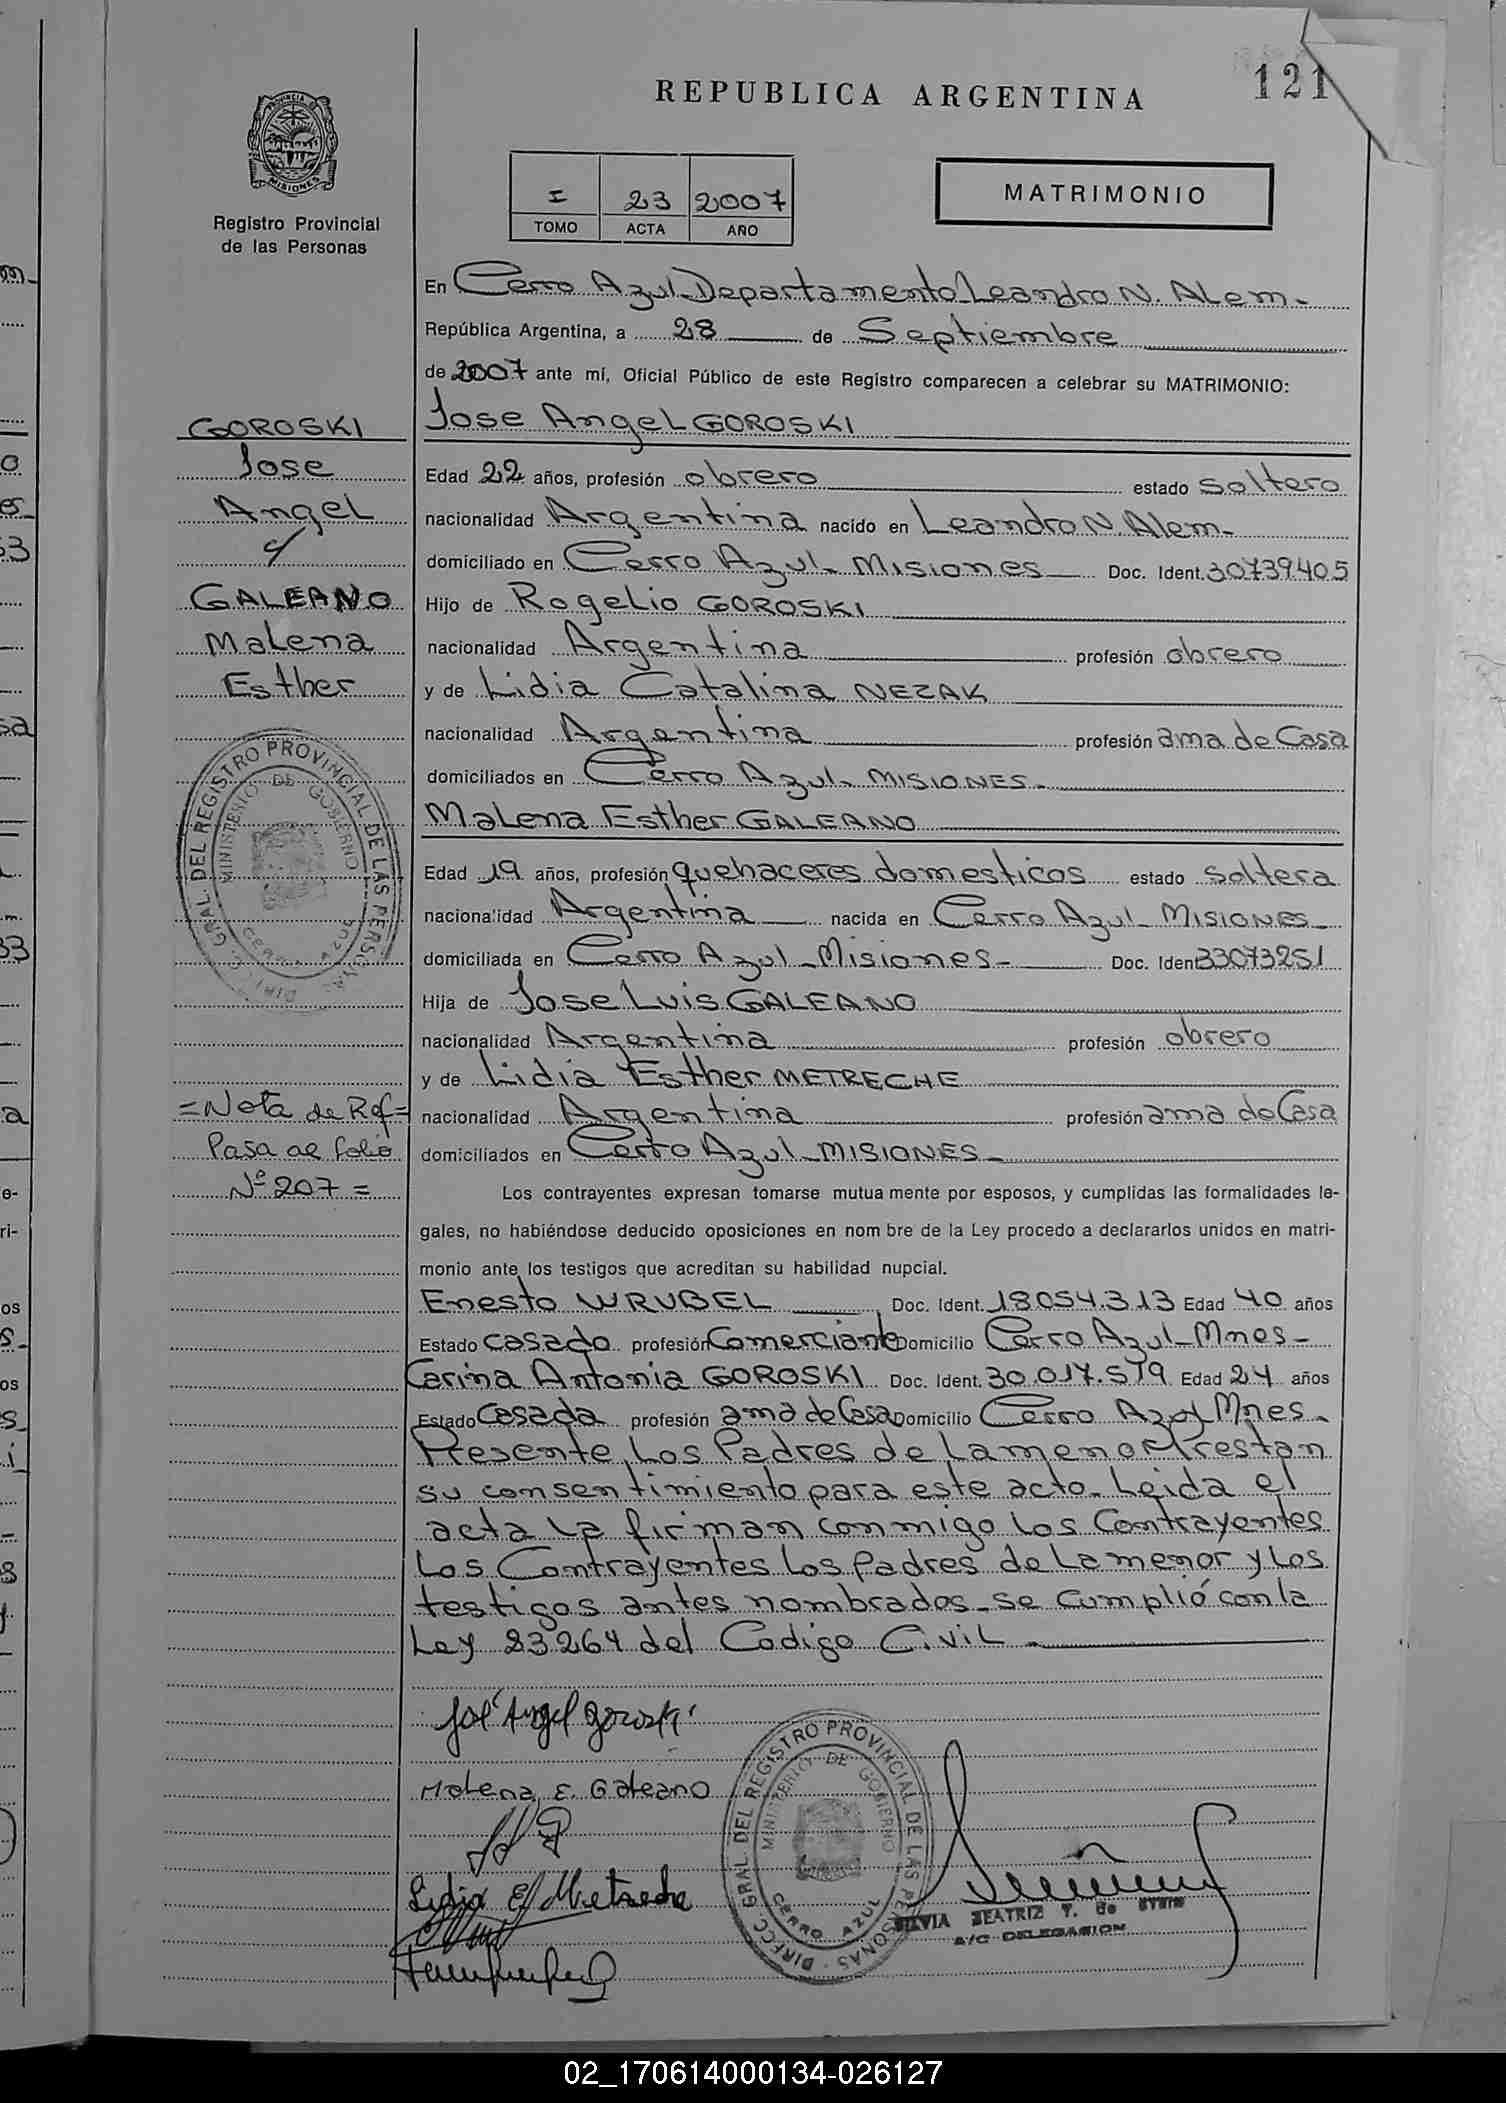 REPUBLICA ARGENTINA
121
PROVINCIA DE
MISIONES
Registro Provincial
de las Personas
I 23 2007
TOMO ACTA AÑO
MATRIMONIO
En Cerro Azul-Departamento Leandro N. Alem-
República Argentina, a 28 de Septiembre
de 2007 ante mí, Oficial Público de este Registro comparecen a celebrar su MATRIMONIO:
GOROSKI
Jose
Angel
y
GALEANO
Malena
Esther
Jose Angel GOROSKI
Edad 22 años, profesión obrero estado soltero
nacionalidad Argentina nacido en Leandro N. Alem-
domiciliado en Cerro Azul-MISIONES Doc. Ident. 30739405
Hijo de Rogelio GOROSKI
nacionalidad Argentina profesión obrero
y de Lidia Catalina NEZAK
nacionalidad Argentina profesión ama de Casa
domiciliados en Cerro Azul-MISIONES-
Malena Esther GALEANO
Edad 19 años, profesión quehaceres domesticos estado soltera
nacionalidad Argentina nacida en Cerro Azul-MISIONES-
domiciliada en Cerro Azul-Misiones- Doc. Iden 33073251
Hija de Jose Luis GALEANO
nacionalidad Argentina profesión obrero
y de Lidia Esther METRECHE
nacionalidad Argentina profesión ama de Casa
domiciliados en Cerro Azul-MISIONES-
DIRECC. GRAL. DEL REGISTRO PROVINCIAL DE LAS PERSONAS
MINISTERIO DE GOBIERNO
CERRO AZUL
=Nota de Ref=
Pasa al folio
Nº 207=
Los contrayentes expresan tomarse mutua mente por esposos, y cumplidas las formalidades le-
gales, no habiéndose deducido oposiciones en nom bre de la Ley procedo a declararlos unidos en matri-
monio ante los testigos que acreditan su habilidad nupcial.
Enesto WRUBEL Doc. Ident. 18054.313 Edad 40 años
Estado casado profesión Comerciante Domicilio Cerro Azul-Mnes-
Carina Antonia GOROSKI Doc. Ident. 30.017.579 Edad 24 años
Estado Casada profesión ama de Casa Domicilio Cerro Azul Mnes-
Presente Los Padres de La menor Prestan
su consentimiento para este acto- Leida el
acta La firman conmigo Los Contrayentes
Los Contrayentes Los padres de La menor y Los
testigos antes nombrados-se cumplió con la
Ley 23264 del Codigo Civil-
José Angel Goroski
Malena E. Galeano
Lidia E Metreche
DIRECC. GRAL DEL REGISTRO PROVINCIAL DE LAS PERSONAS
MINISTERIO DE GOBIERNO
CERRO AZUL
SILVIA BEATRIZ T. de
A/C DELEGACION
02_170614000134-026127